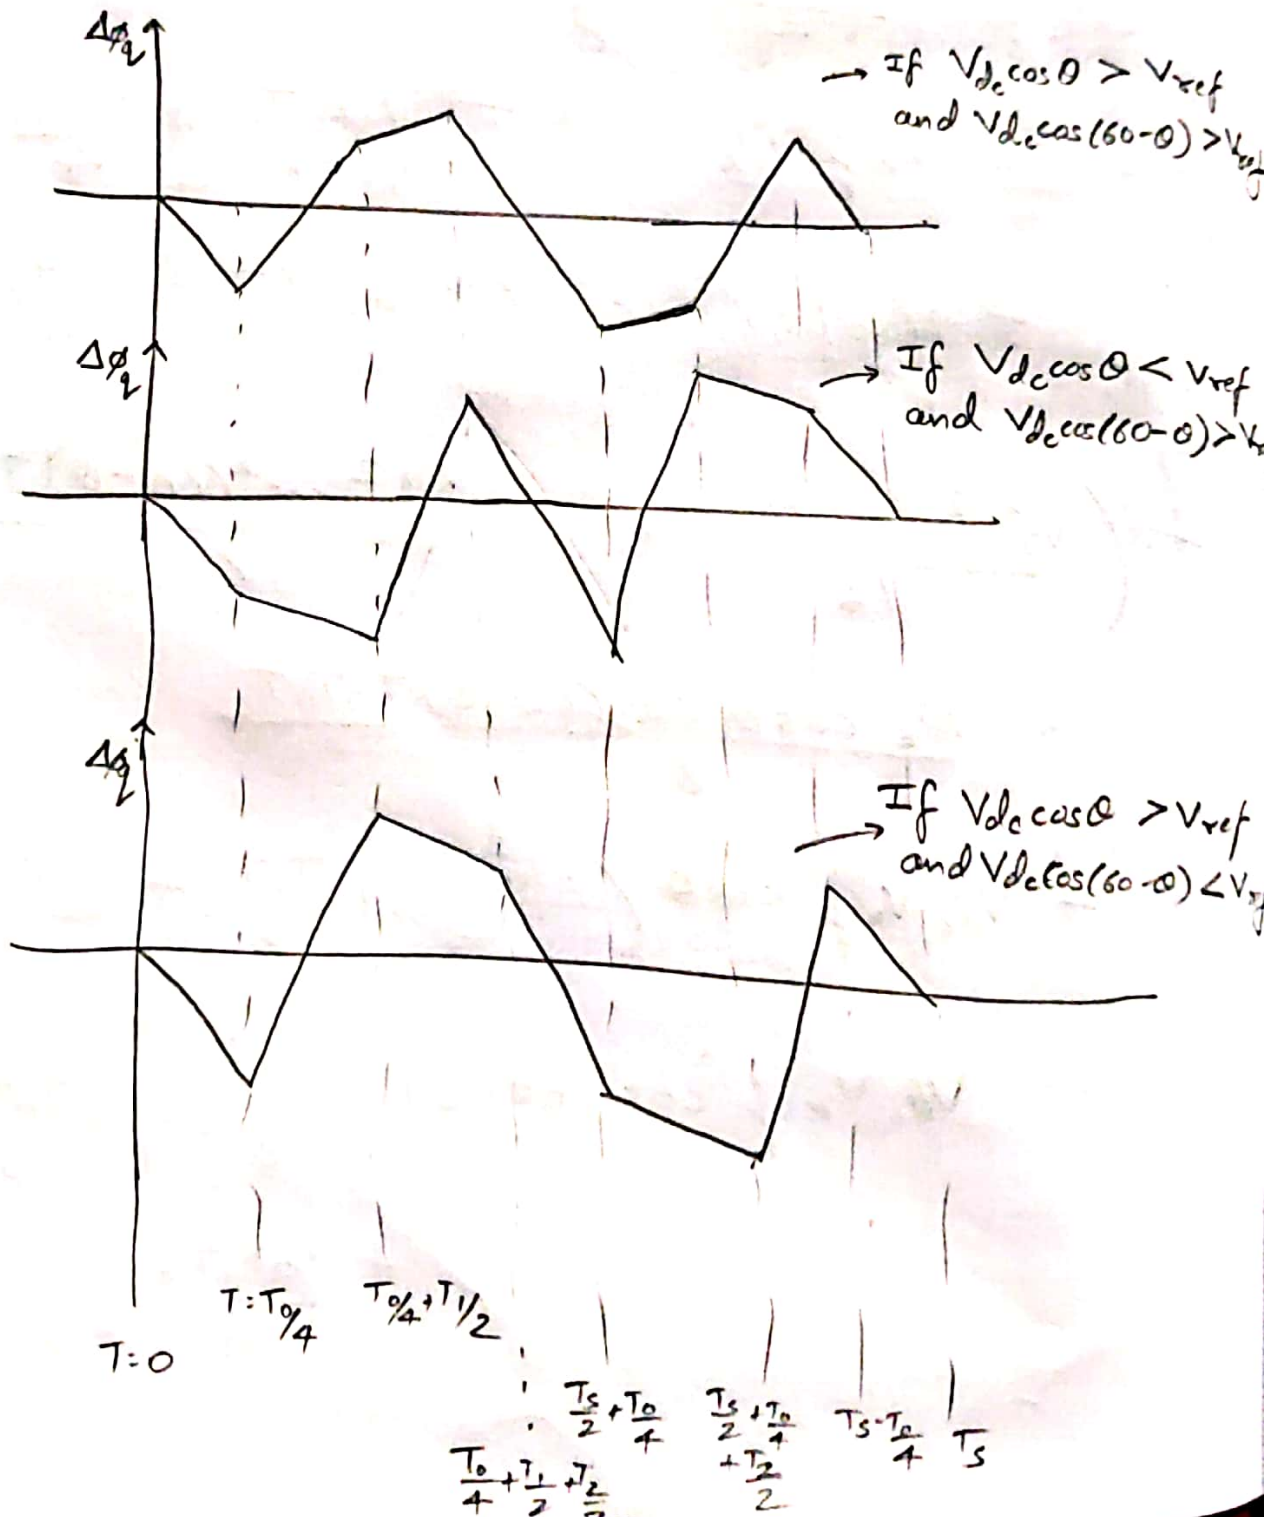 Δφq
→ If Vdc cosθ > Vref
and Vdc cos(60-θ) > Vref
Δφq
→ If Vdc cosθ < Vref
and Vdc cos(60-θ) > Vr
Δφq
→ If Vdc cosθ > Vref
and Vdc cos(60-θ) < Vref
T=0
T=T0/4
T0/4+T1/2
T0/4+T1/2+T2/2
Ts/2+T0/4
Ts/2+T0/4+T2/2
Ts-T0/4
Ts